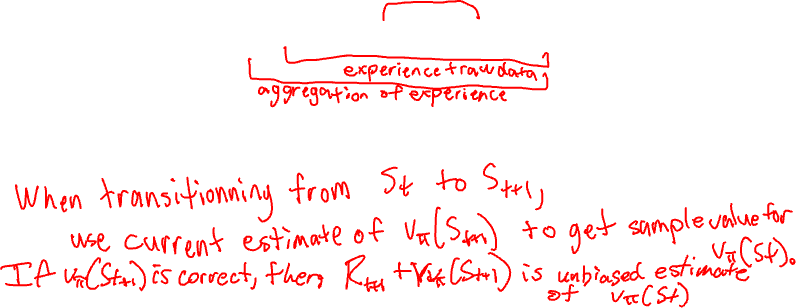 experience + raw data
aggregation of experience
When transitionning from St to St+1,
use current estimate of vπ(St+1) to get sample value for vπ(St).
If vπ(St+1) is correct, then Rt+1 + γvπ(St+1) is unbiased estimate of vπ(St)